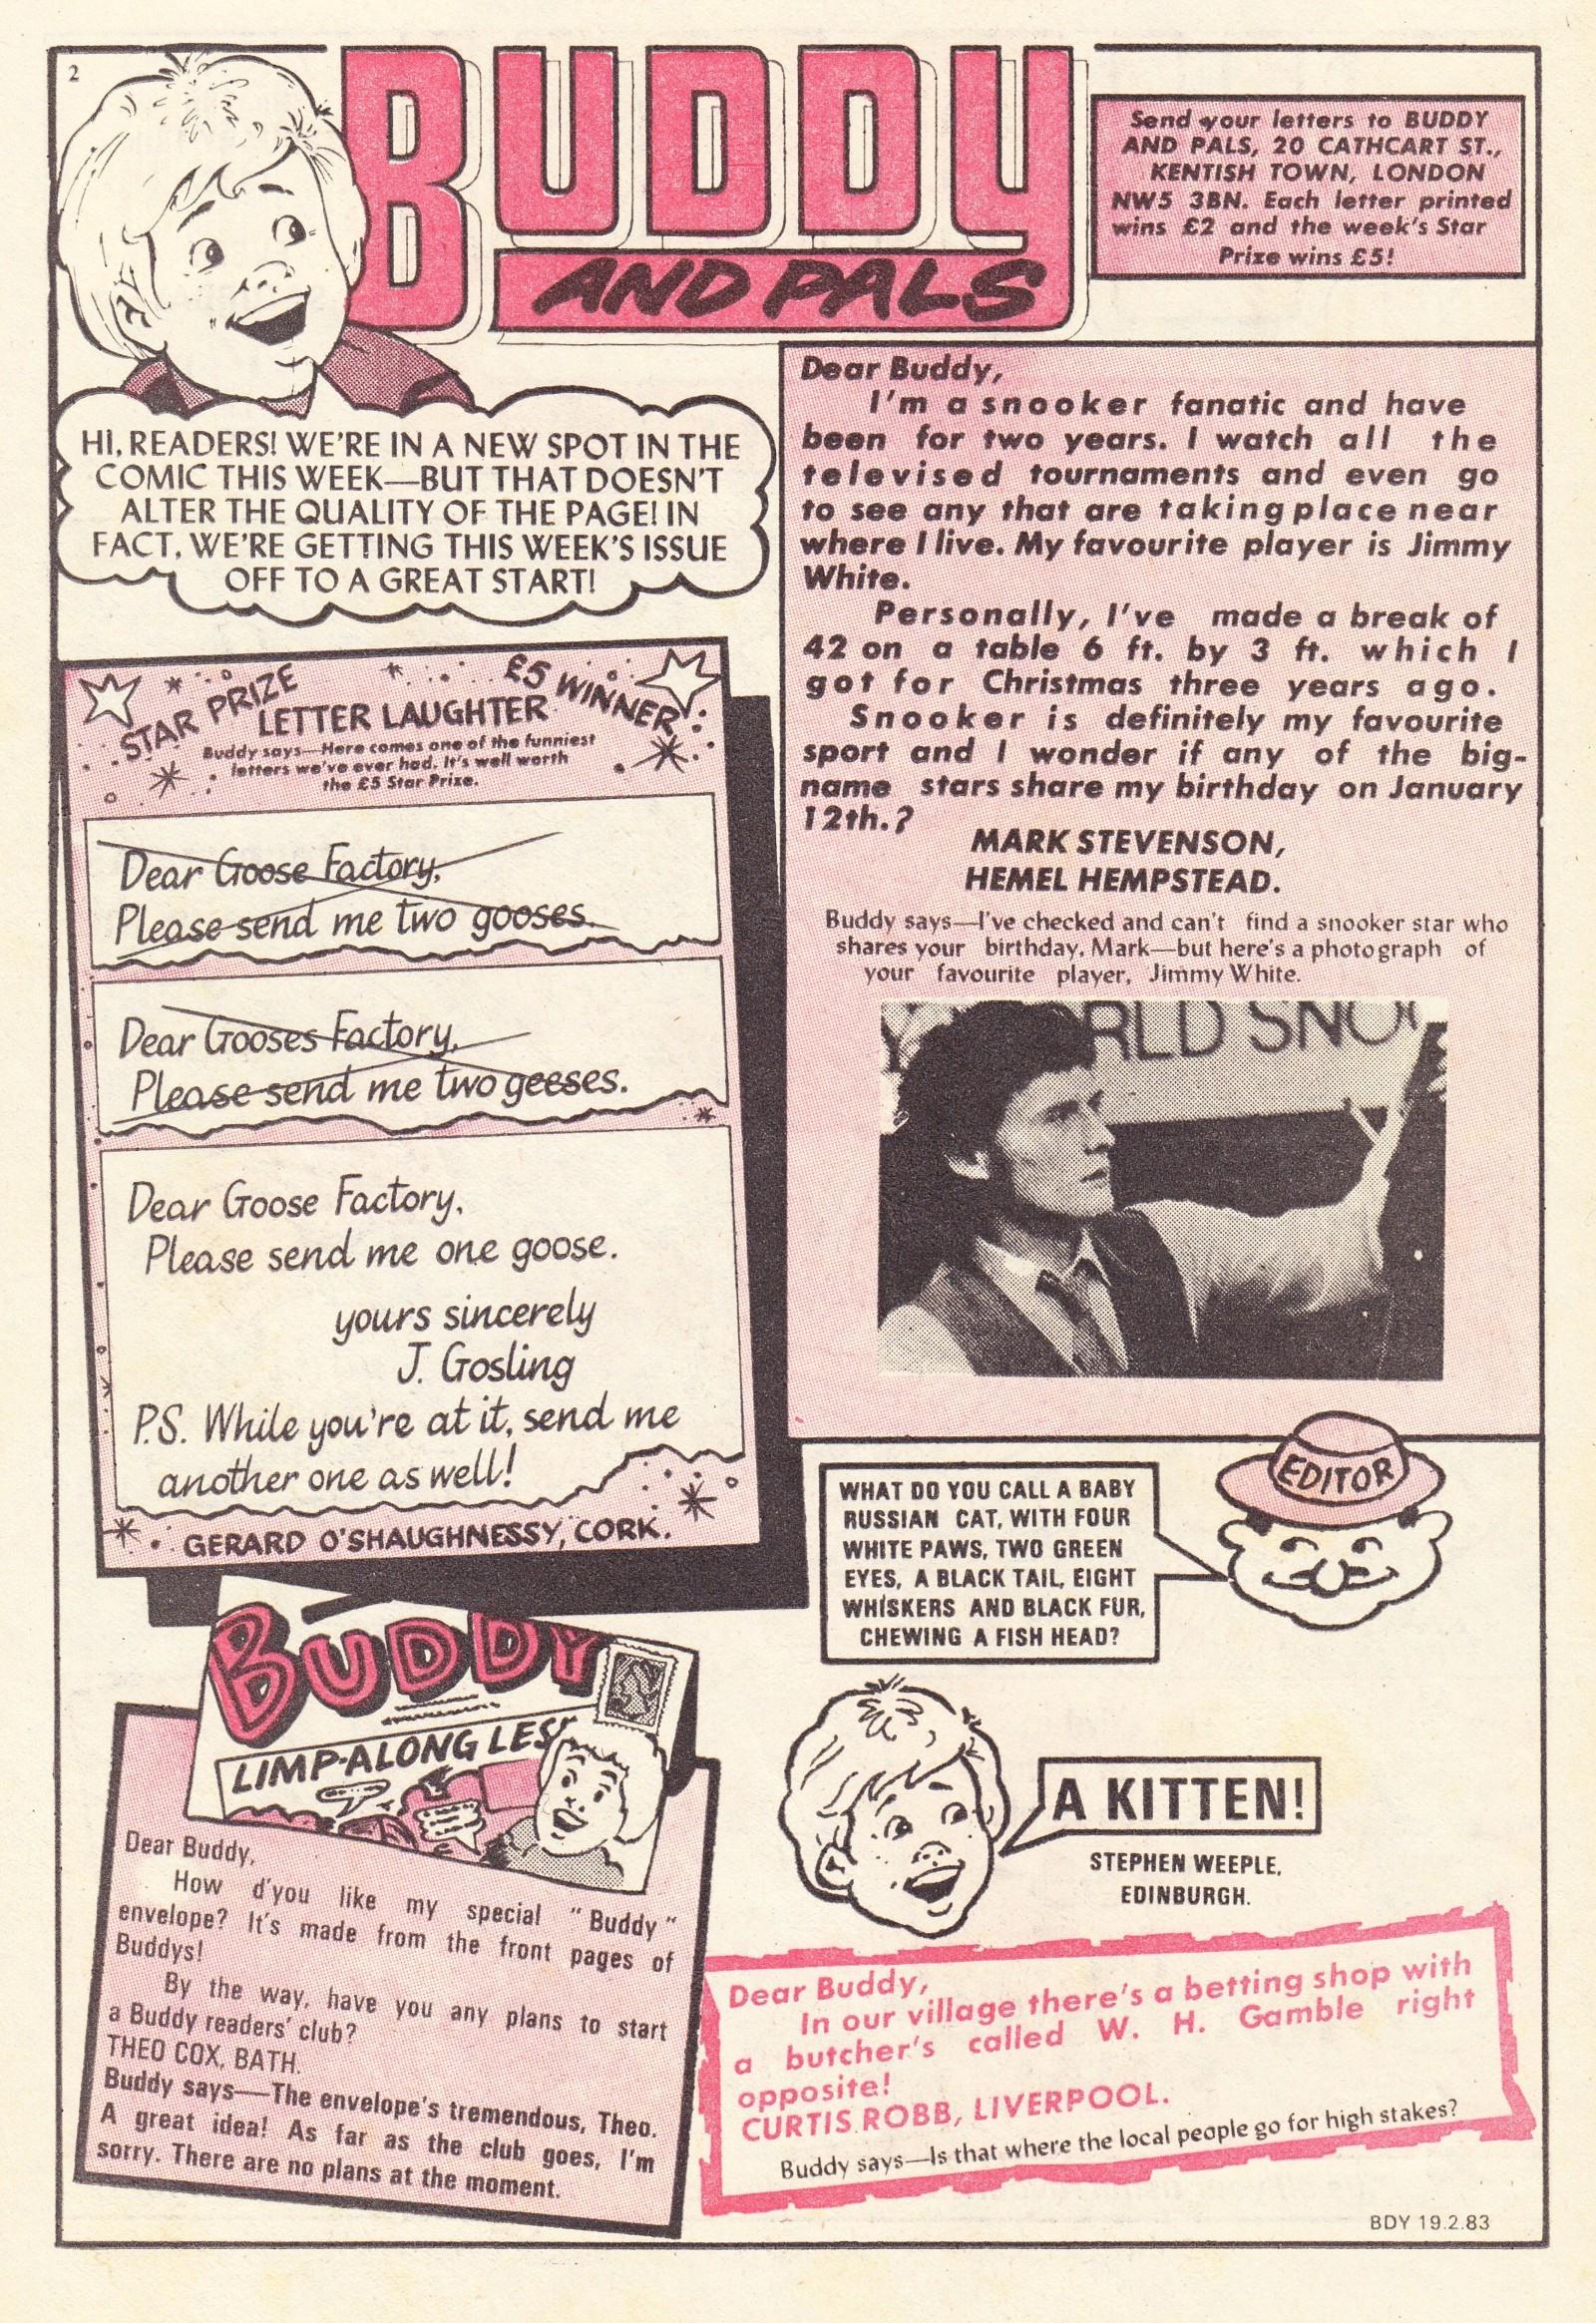 2
BUDDY
AND PALS
Send your letters to BUDDY
AND PALS, 20 CATHCART ST.,
KENTISH TOWN, LONDON
NW5 3BN. Each letter printed
wins £2 and the week's Star
Prize wins £5!
HI, READERS! WE'RE IN A NEW SPOT IN THE
COMIC THIS WEEK—BUT THAT DOESN'T
ALTER THE QUALITY OF THE PAGE! IN
FACT, WE'RE GETTING THIS WEEK'S ISSUE
OFF TO A GREAT START!
STAR PRIZE
£5 WINNER
LETTER LAUGHTER
Buddy says—Here comes one of the funniest
letters we've ever had. It's well worth
the £5 Star Prize.
Dear Goose Factory,
Please send me two gooses.
Dear Gooses Factory,
Please send me two geeses.
Dear Goose Factory,
Please send me one goose.
yours sincerely
J. Gosling
P.S. While you're at it, send me
another one as well!
GERARD O'SHAUGHNESSY, CORK.
Dear Buddy,
I'm a snooker fanatic and have
been for two years. I watch all the
televised tournaments and even go
to see any that are taking place near
where I live. My favourite player is Jimmy
White.
Personally, I've made a break of
42 on a table 6 ft. by 3 ft. which I
got for Christmas three years ago.
Snooker is definitely my favourite
sport and I wonder if any of the big-
name stars share my birthday on January
12th.?
MARK STEVENSON,
HEMEL HEMPSTEAD.
Buddy says—I've checked and can't find a snooker star who
shares your birthday, Mark—but here's a photograph of
your favourite player, Jimmy White.
RLD SNO
EDITOR
WHAT DO YOU CALL A BABY
RUSSIAN CAT, WITH FOUR
WHITE PAWS, TWO GREEN
EYES, A BLACK TAIL, EIGHT
WHISKERS AND BLACK FUR,
CHEWING A FISH HEAD?
A KITTEN!
STEPHEN WEEPLE,
EDINBURGH.
BUDDY
LIMP-ALONG LES
Dear Buddy,
How d'you like my special "Buddy"
envelope? It's made from the front pages of
Buddys!
By the way, have you any plans to start
a Buddy readers' club?
THEO COX, BATH.
Buddy says—The envelope's tremendous, Theo.
A great idea! As far as the club goes, I'm
sorry. There are no plans at the moment.
Dear Buddy,
In our village there's a betting shop with
a butcher's called W. H. Gamble right
opposite!
CURTIS ROBB, LIVERPOOL.
Buddy says—Is that where the local people go for high stakes?
BDY 19.2.83